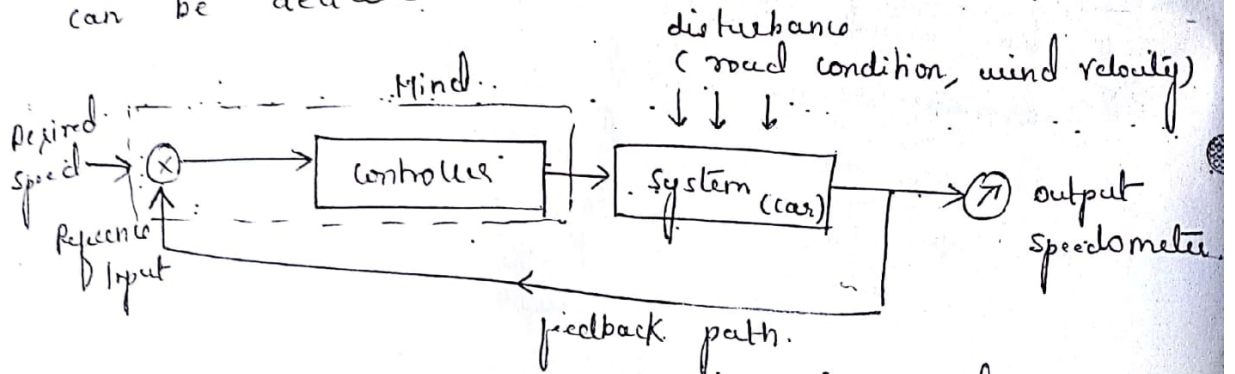 can be
disturbance
(road condition, wind velocity)
Mind..
Desired
Speed
Controller
System
(car)
output
speedometer.
Reference
Input
feedback path.